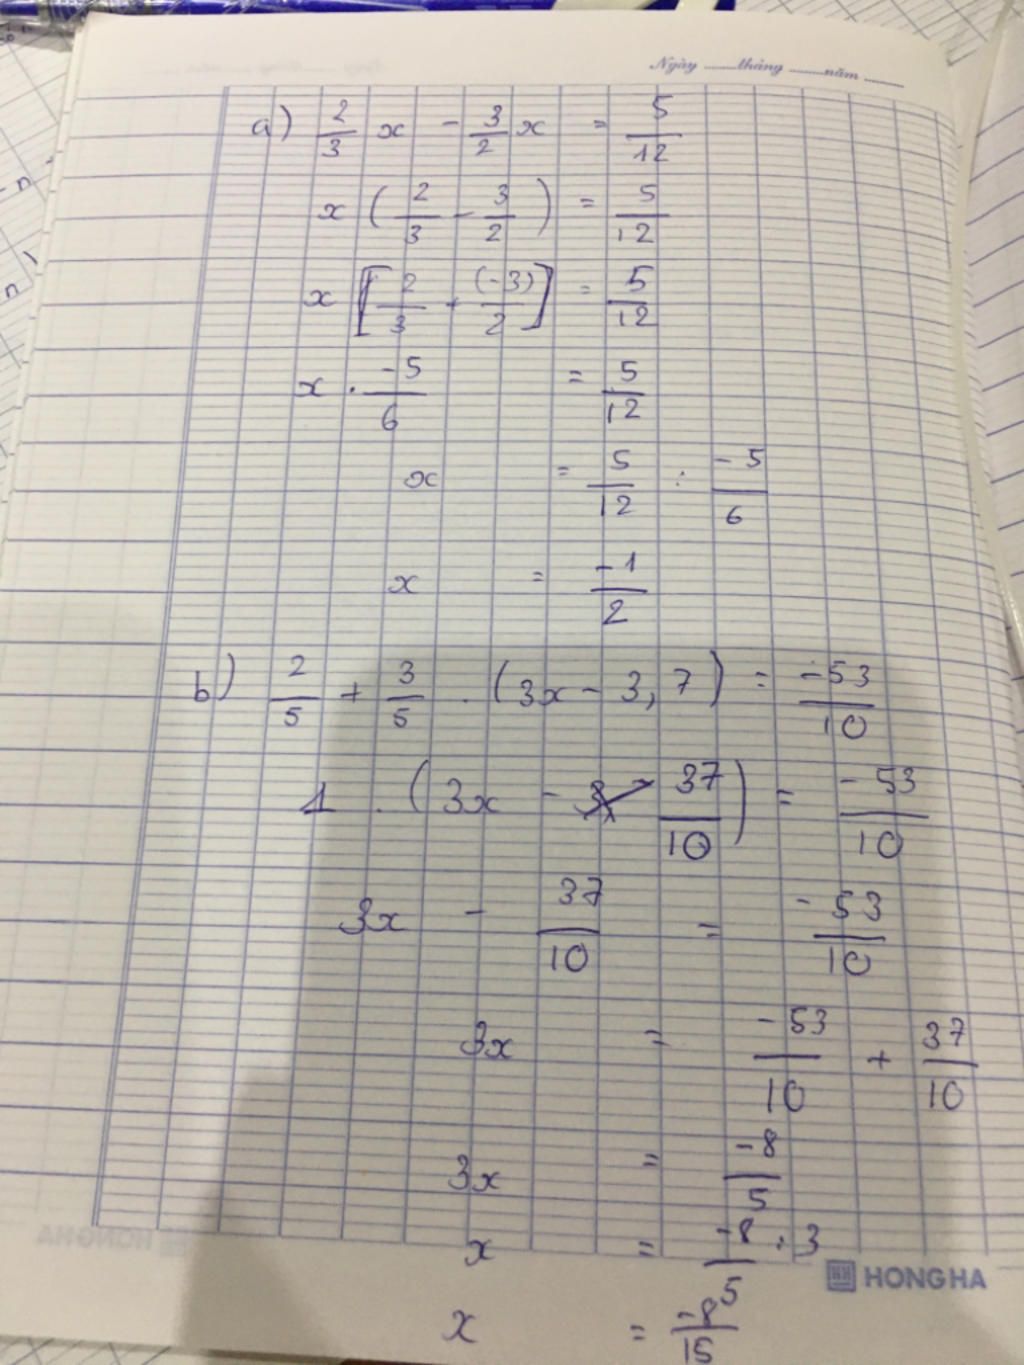 Ngày ......tháng ......năm ......
a) 2/3 x - 3/2 x = 5/12
x (2/3 - 3/2) = 5/12
x [2/3 + (-3)/2] = 5/12
x . -5/6 = 5/12
x = 5/12 : -5/6
x = -1/2
b) 2/5 + 3/5 . (3x - 3,7) = -53/10
1 . (3x - 37/10) = -53/10
3x - 37/10 = -53/10
3x = -53/10 + 37/10
3x = -8/5
x = -8/5 : 3
HONG HA
x = -8/15